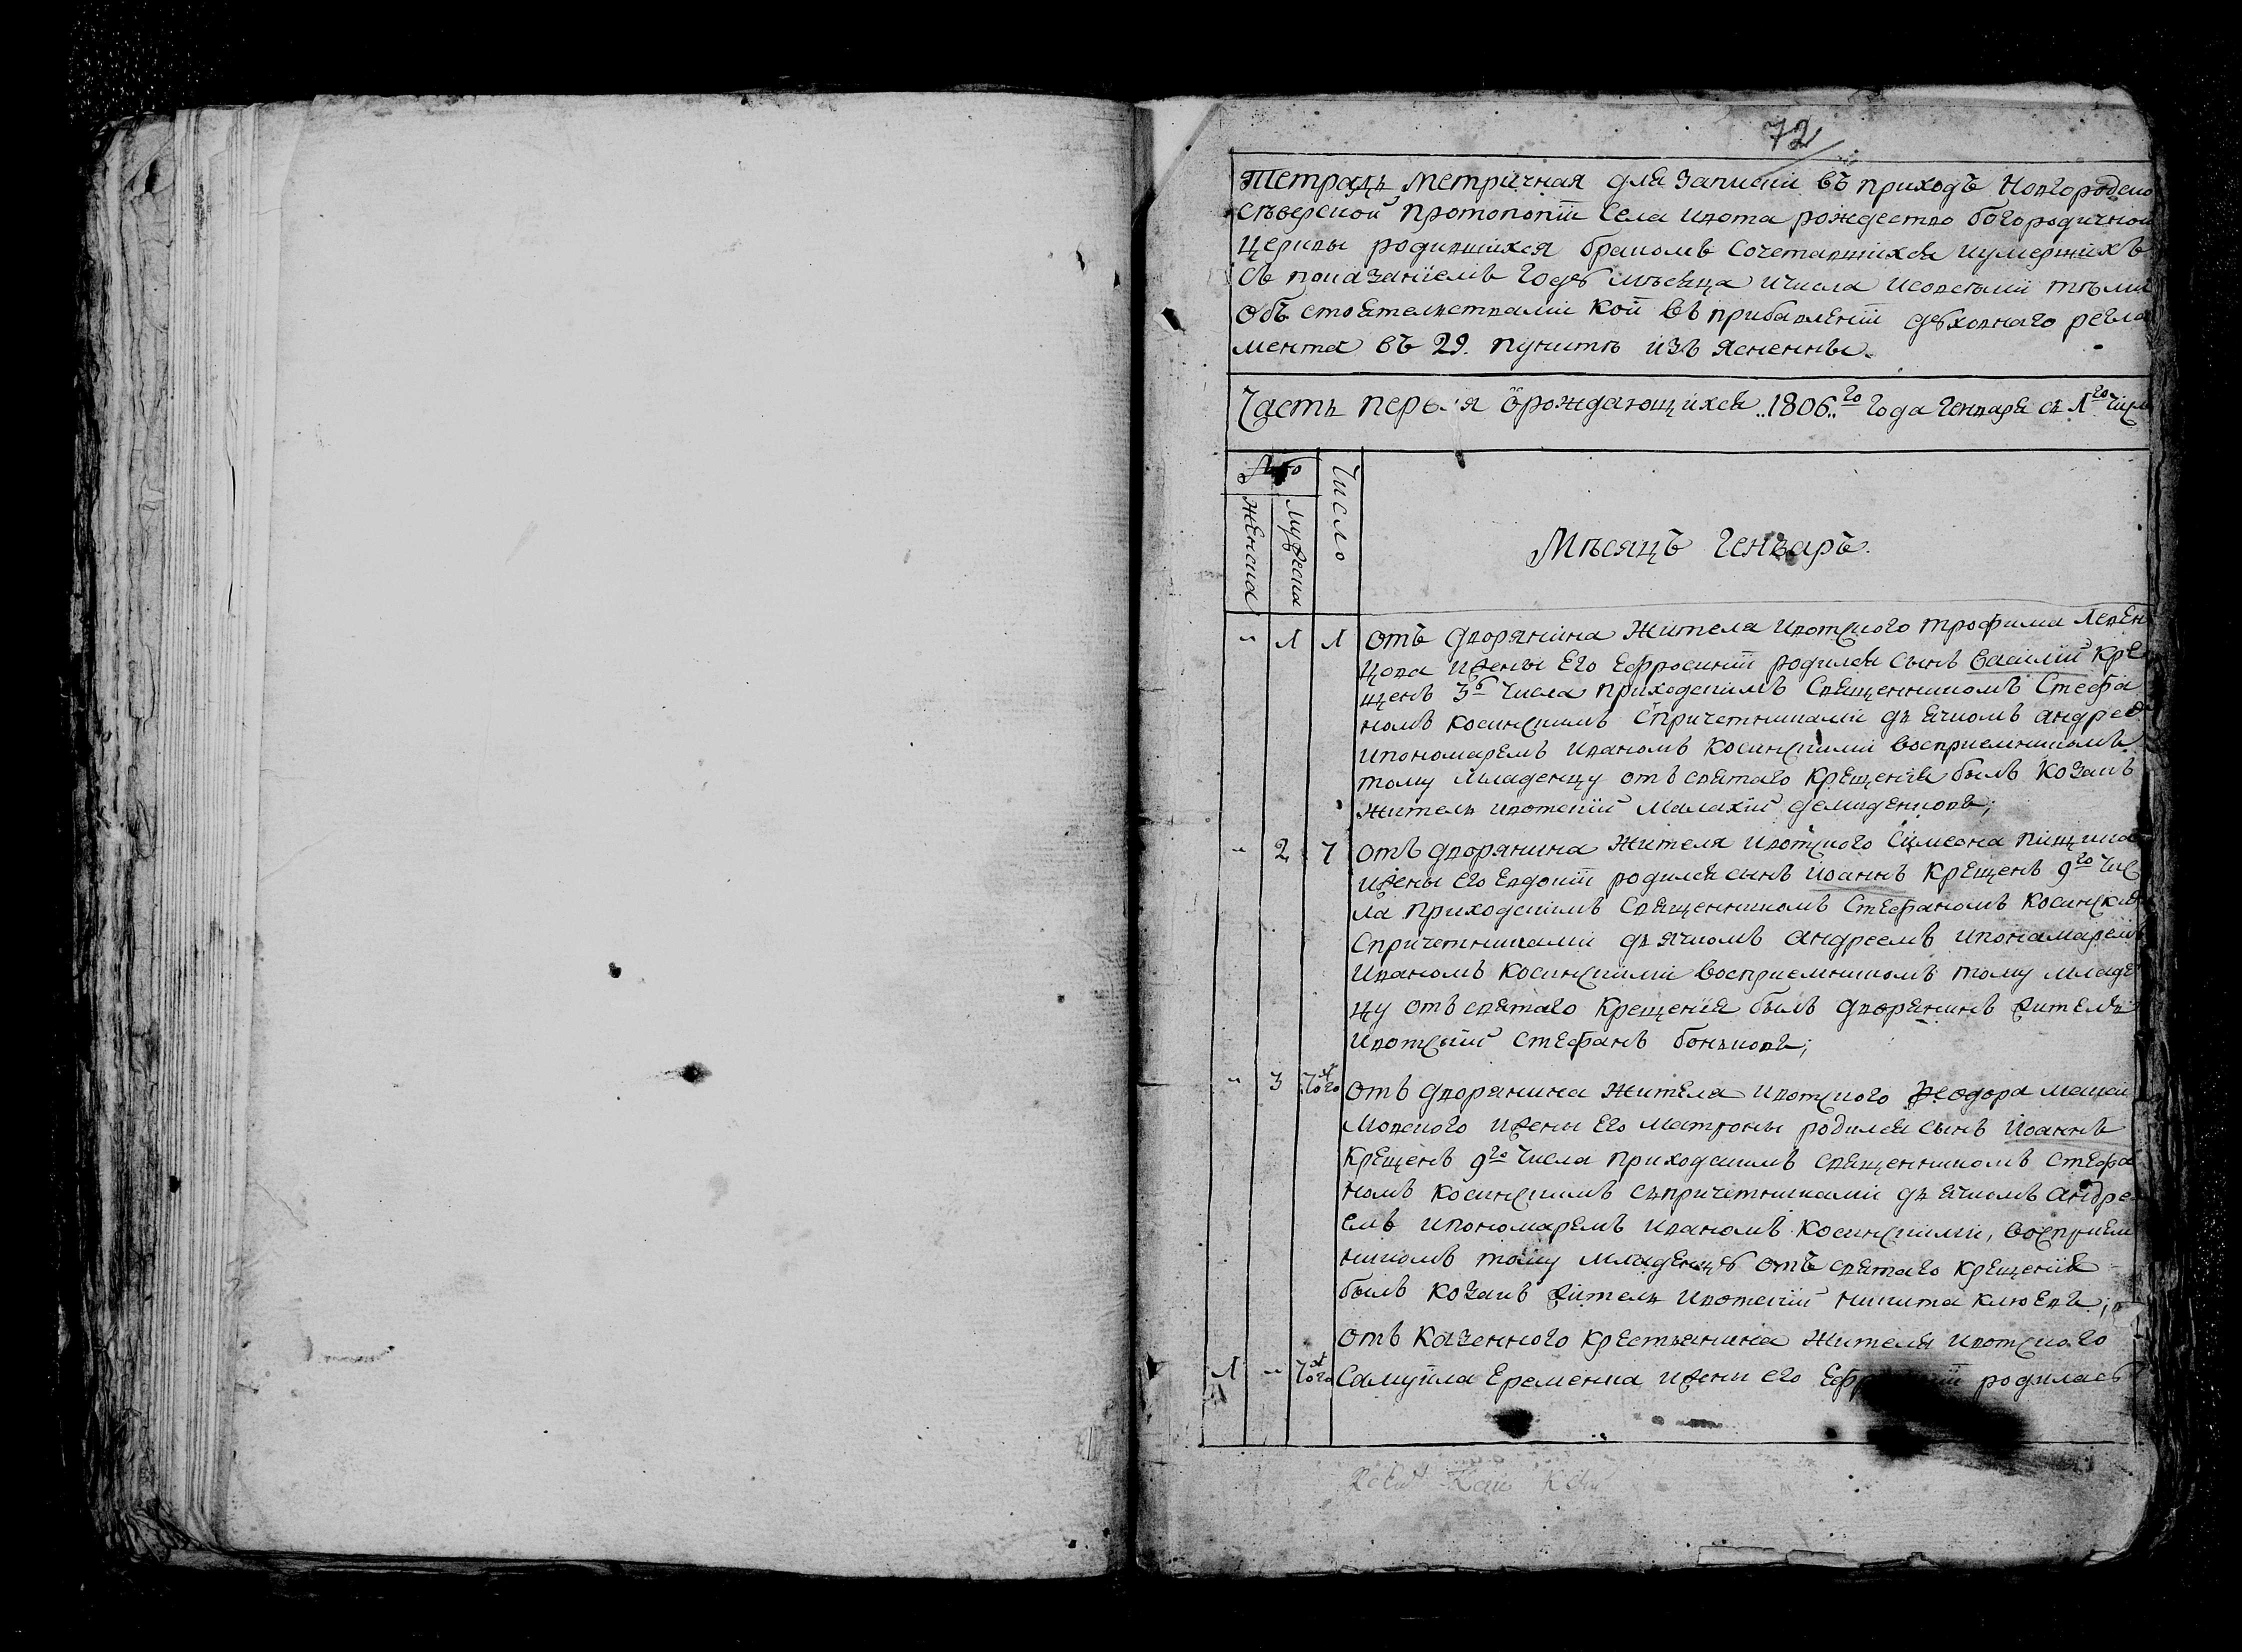 72
Тетрадь Метричная для записки въ приходѣ Новгородско
сѣверской Протопопіи села Ивота рождество богородичной
Церквы родившихся бракомъ Сочетавшихся иумершихъ
Съ показаніемъ году мѣсяца ичисла исовсѣми тѣми
Обстоятельствами кои въ прибавленіи духовнаго регла
мента въ 29. пунктѣ изъ ясненны.
Часть первая ѽрождающихся ..1806..го Года Генваря съ 1го Числ
Число
Мужеска
Женска
Мѣсяцъ Генварь.
" 1 1 Отъ дворянина Жителя Ивотского Трофима Левен
цова ижены Его Ефросиніи родился сынъ Василій кре
щенъ 3го Числа приходскимъ Священникомъ Стефа
номъ Косинскимъ Спричетниками дьячкомъ андрее
ипономаремъ Иваномъ Косинскими восприемникомъ
тому Младенцу отъ святаго крещенія былъ козакъ
Житель ивотскій Малахій демиденковъ;
" 2 7 Отъ дворянина Жителя ивотского Симеона Пищика
ижены его Евдокіи родился сынъ Иоаннъ Крещенъ 9го Чис
ла Приходскимъ Священникомъ Стефаномъ Косинским
Спричетниками дьячкомъ андреемъ ипонамаремъ
Иваномъ Косинскими восприемникомъ тому младе
цу отъ святаго Крещенія былъ дворянинъ житель
Ивотскій Стефанъ боньковъ;
" 3 7 того Отъ дворянина Жителя ивотского Феодора Машки
Мовского ижены Его Матроны родился сынъ Иоаннъ
Крещенъ 9го Числа Приходскимъ священникомъ Стефа
номъ Косинскимъ съпричетниками дьячкомъ андре
емъ ипономаремъ Иваномъ Косинскими, восприем
никомъ тому младенцу отъ святаго крещенія
былъ козакъ житель Ивотскій никита клюевъ;
Отъ Казенного крестьянина Жителя ивотского
1 " Самуила Еременка ижени его родилась